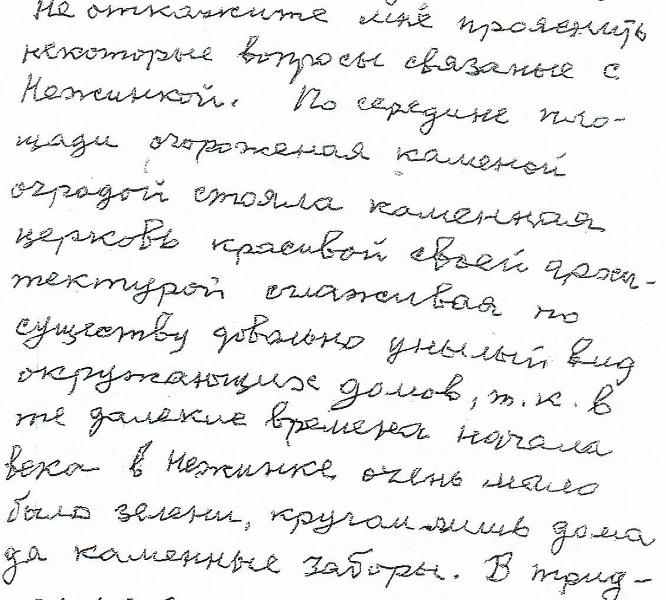 Не откажите мне прояснить
некоторые вопросы связаные с
Нежинкой. По середине пло-
щади огороженая каменой
оградой стояла каменная
церковь красивой своей архи-
тектурой сглаживая по
существу довально унылый вид
окружающих домов, т.к. в
те далекие времена начала
века в Нежинке очень мало
было зелени, кругом лишь дома
да каменные заборы. В трид-